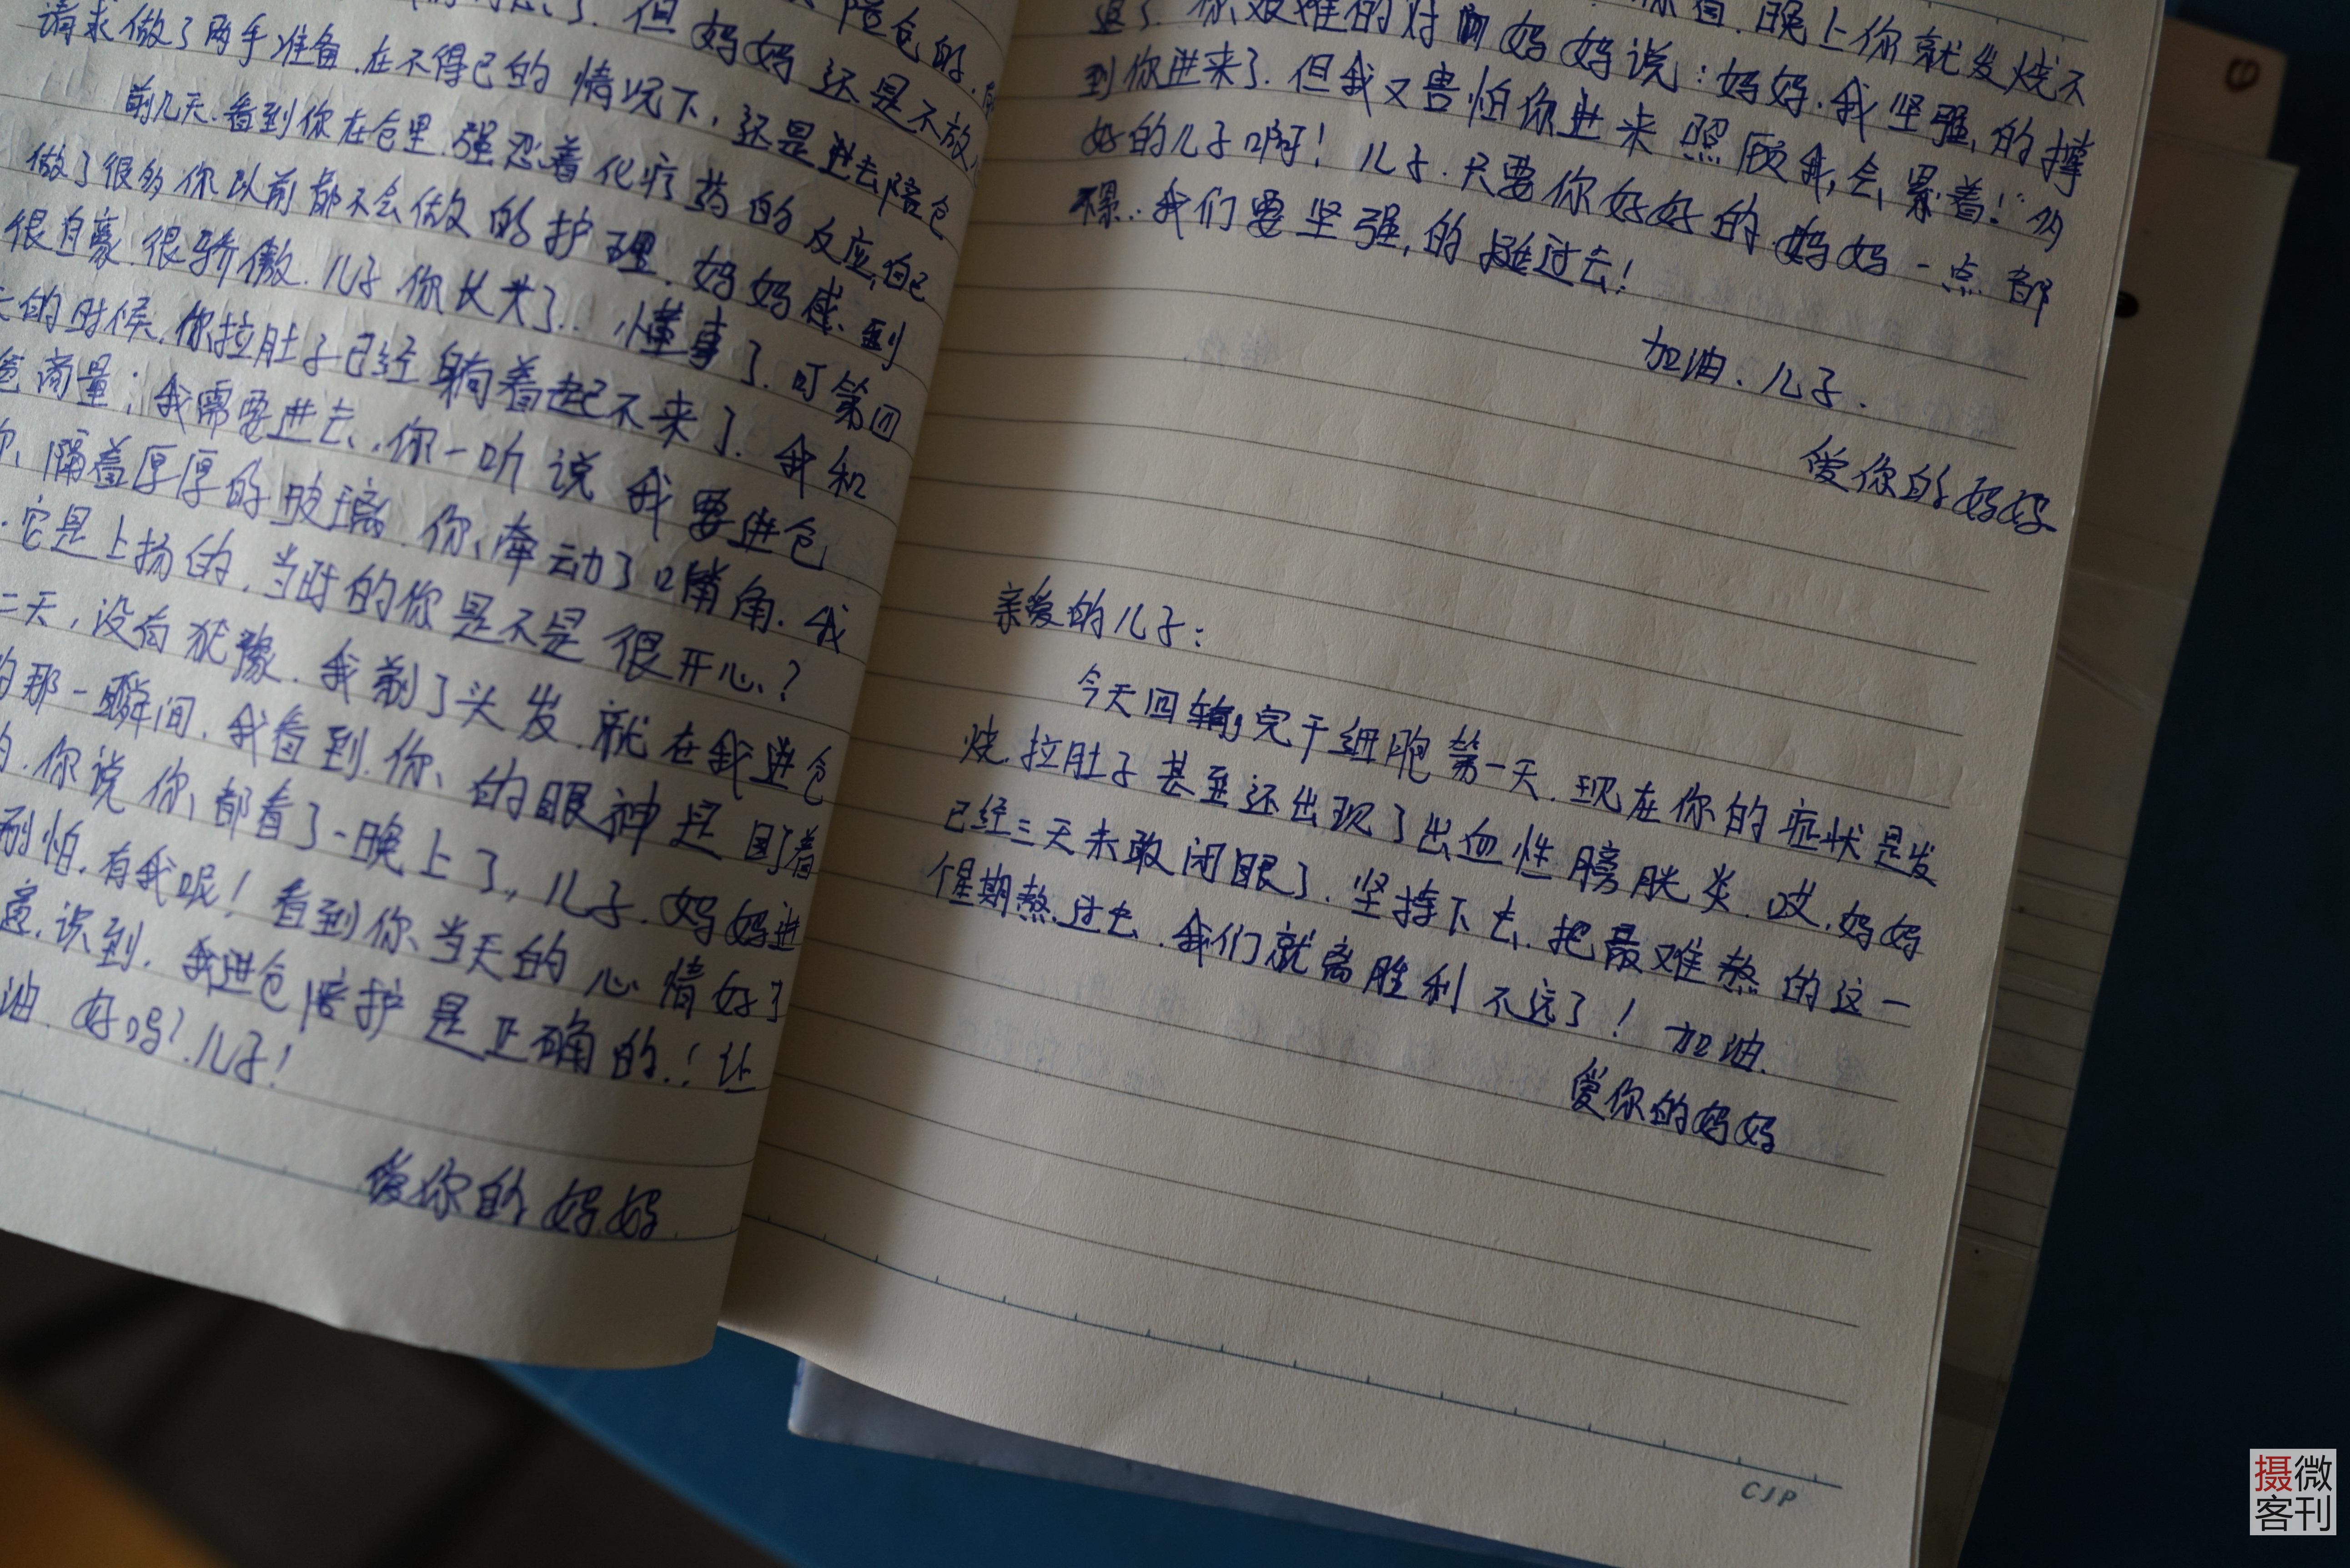 陪仓的.
了.但妈妈还是不放
请求做了两手准备.在不得已的情况下,还是进去陪仓
前几天.看到你在仓里.强忍着化疗药的反应,自己
做了很多你以前都不会做的护理.妈妈感到
很自豪.很骄傲.儿子你长大了..懂事了.可第四
天的时候.你拉肚子已经躺着起不来了.我和
爸商量;我需要进去.你一听说我要进仓
你、隔着厚厚的玻璃.你牵动了嘴角.我
.它是上扬的.当时的你是不是很开心?
二天,没有犹豫.我剃了头发.就在我进仓
的那一瞬间.我看到你的眼神是盯着
的.你说你都看了一晚上了,儿子.妈妈进
别怕.有我呢!看到你当天的心情好了
意识到.我进仓陪护是正确的!让
油.好吗?儿子!
爱你的妈妈
晚上你就发烧不
退了.你艰难的对妈妈说:妈妈.我坚强的撑
到你进来了.但我又害怕你进来照顾我,会累着!多
好的儿子啊!儿子.只要你好好的妈妈一点都
不累..我们要坚强的挺过去!
加油、儿子.
爱你的妈妈
亲爱的儿子:
今天回输完干细胞第一天.现在你的症状是发
烧.拉肚子甚至还出现了出血性膀胱炎.哎.妈妈
已经三天未敢闭眼了.坚持下去.把最难熬的这一
个星期熬过去.我们就离胜利不远了!加油.
爱你的妈妈
CJP
摄微
客刊